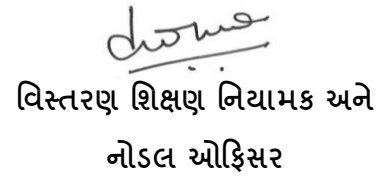 વિસ્તરણ શિક્ષણ નિયામક અને
નોડલ ઓફિસર